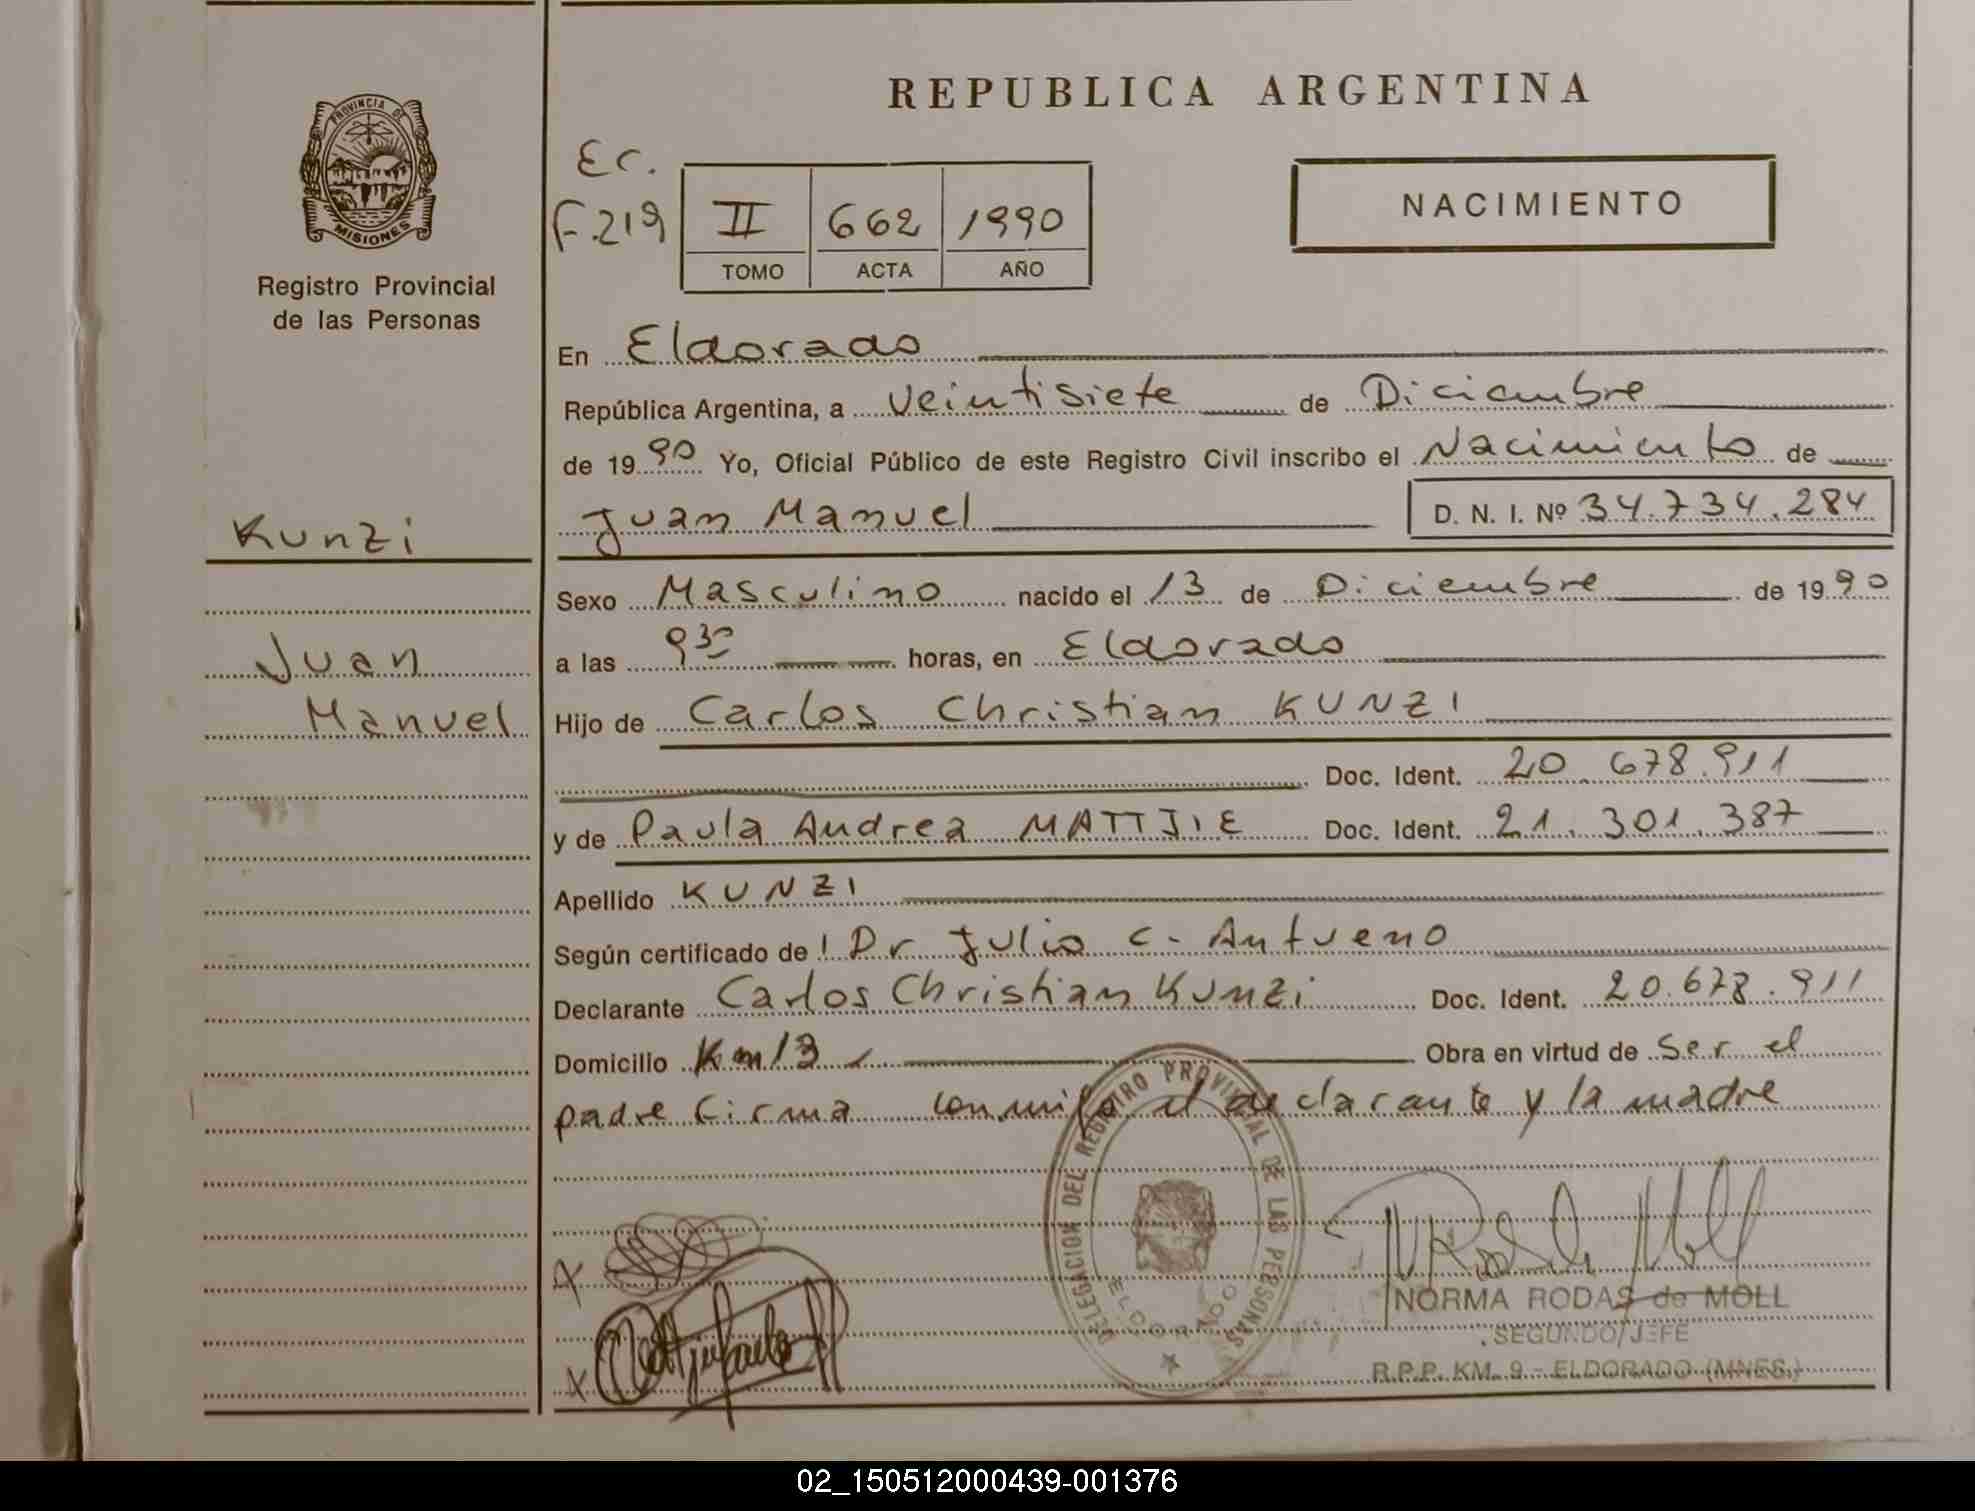 REPUBLICA ARGENTINA
PROVINCIA DE
MISIONES
Registro Provincial
de las Personas
Ec.
F.219
II 662 1990
TOMO ACTA AÑO
NACIMIENTO
En Eldorado
República Argentina, a veintisiete de Diciembre
de 1990 Yo, Oficial Público de este Registro Civil inscribo el Nacimiento de
Kunzi
Juan Manuel D. N. I. Nº 34.734.284
Sexo Masculino nacido el 13 de Diciembre de 1990
Juan
a las 9 30 horas, en Eldorado
Manuel
Hijo de Carlos Christian KUNZI
Doc. Ident. 20.678.911
y de Paula Andrea MATTJIE Doc. Ident. 21.301.387
Apellido KUNZI
Según certificado de Dr. Julio C. Antueno
Declarante Carlos Christian Kunzi Doc. Ident. 20.678.911
Domicilio Km 13 Obra en virtud de Ser el
padre firma conmigo el declarante y la madre
DELEGACION DEL REGISTRO PROVINCIAL DE LAS PERSONAS
ELDORADO
NORMA RODAS de MOLL
SEGUNDO JEFE
R.P.P. KM. 9 - ELDORADO (MNES.)
02_150512000439-001376